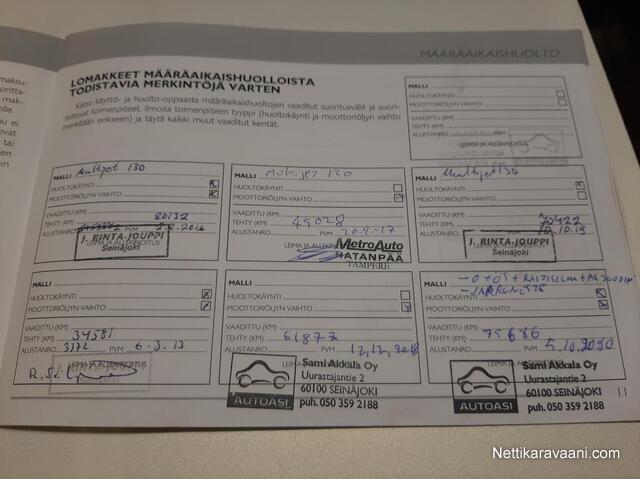 MÄÄRÄAIKAISHUOLTO
LOMAKKEET MÄÄRÄAIKAISHUOLLOISTA
TODISTAVIA MERKINTÖJÄ VARTEN
Katso käyttö- ja huolto-oppaasta määräaikaishuoltojen vaaditut suoritusvälit ja suori-
tettavat toimenpiteet. Ilmoita toimenpiteen tyyppi (huoltokäynti ja moottoriöljyn vaihto
merkitään erikseen) ja täytä kaikki muut vaaditut kentät.
MALLI
HUOLTOKÄYNTI
MOOTTORIÖLJYN VAIHTO
VAADITTU (KM)
TEHTY (KM)
ALUSTANRO. PVM
LEIMA JA ALLEKIRJOITUS
MALLI Multijet 130
HUOLTOKÄYNTI
MOOTTORIÖLJYN VAIHTO
VAADITTU (KM)
TEHTY (KM) 20132
ALUSTANRO.
LEIMA JA ALLEKIRJOITUS
J. RINTA-JOUPPI
Seinäjoki
MALLI Multijet 130
HUOLTOKÄYNTI
MOOTTORIÖLJYN VAIHTO
VAADITTU (KM)
TEHTY (KM) 45028
ALUSTANRO. PVM 20.9-17
LEIMA JA ALLEKIRJOITUS
MetroAuto
HATANPÄÄ
TAMPERE
MALLI Multijet 130
HUOLTOKÄYNTI
MOOTTORIÖLJYN VAIHTO
VAADITTU (KM)
TEHTY (KM)
ALUSTANRO. PVM
LEIMA JA ALLEKIRJOITUS
J. RINTA-JOUPPI
Seinäjoki
MALLI
HUOLTOKÄYNTI
MOOTTORIÖLJYN VAIHTO
VAADITTU (KM)
TEHTY (KM) 34581
ALUSTANRO. 3372 PVM 6.3.17
LEIMA JA ALLEKIRJOITUS
MALLI
HUOLTOKÄYNTI
MOOTTORIÖLJYN VAIHTO
VAADITTU (KM)
TEHTY (KM) 61877
ALUSTANRO. PVM 12.12.2018
AUTOASI
Sami Akkala Oy
Uurastajantie 2
60100 SEINÄJOKI
puh. 050 359 2188
MALLI
HUOLTOKÄYNTI
MOOTTORIÖLJYN VAIHTO
VAADITTU (KM)
TEHTY (KM) 75686
ALUSTANRO. PVM 5.10.2020
AUTOASI
Sami Akkala Oy
Uurastajantie 2
60100 SEINÄJOKI
puh. 050 359 2188
11
Nettikaravaani.com